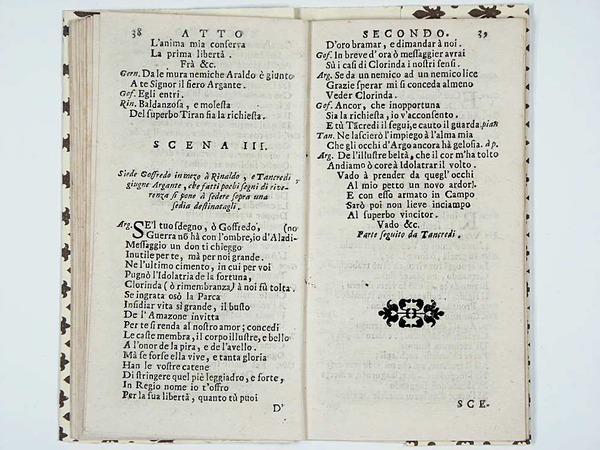 38 ATTO
L'anima mia conserva
La prima libertà.
Frà &c.
Gern. Da le mura nemiche Araldo è giunto
A te Signor il fiero Argante.
Gof. Egli entri.
Rin. Baldanzosa, e molesta
Del superbo Tiran sia la richiesta.
SCENA III.
Siede Goffredo in mezo à Rinaldo, e Tancredi
giugne Argante, che fatti pochi segni di rive-
renza si pone à sedere sopra una
sedia destinatagli.
Arg. SE'l tuo sdegno, ò Goffredo, (no
Guerra nō hà con l'ombre, io d'Aladi-
Messaggio un don ti chieggo
Inutile per te, mà per noi grande.
Ne l'ultimo cimento, in cui per voi
Pugnò l'Idolatria de la fortuna,
Clorinda (ò rimembranza) à noi fù tolta.
Se ingrata osò la Parca
Insidiar vita sì grande, il busto
De l'Amazone invitta
Per te si renda al nostro amor; concedi
Le caste membra, il corpo illustre, e bello
A l'onor de la pira, e de l'avello.
Mà se forse ella vive, e tanta gloria
Han le vostre catene
Di stringere quel piè leggiadro, e forte,
In Regio nome io t'offro
Per la sua libertà, quanto tù puoi
D'
SECONDO. 39
D'oro bramar, e dimandar à noi.
Gof. In breve d'ora ò messaggier avrai
Sù i casi di Clorinda i nostri sensi.
Arg. Se da un nemico ad un nemico lice
Grazie sperar mi si conceda almeno
Veder Clorinda.
Gof. Ancor, che inopportuna
Sia la richiesta, io v'acconsento.
E tù Tācredi il segui, e cauto il guarda. pian
Tan. Ne lascierò l'impiego à l'alma mia
Che gli occhi d'Argo ancora hà gelosia. à p.
Arg. De l'illustre beltà, che il cor m'ha tolto
Andiamo ò core à Idolatrar il volto.
Vado à prender da quegl'occhi
Al mio petto un novo ardor.
E con esso armato in Campo
Sarò poi non lieve inciampo
Al superbo vincitor.
Vado &c.
Parte seguito da Tancredi.
SCE-